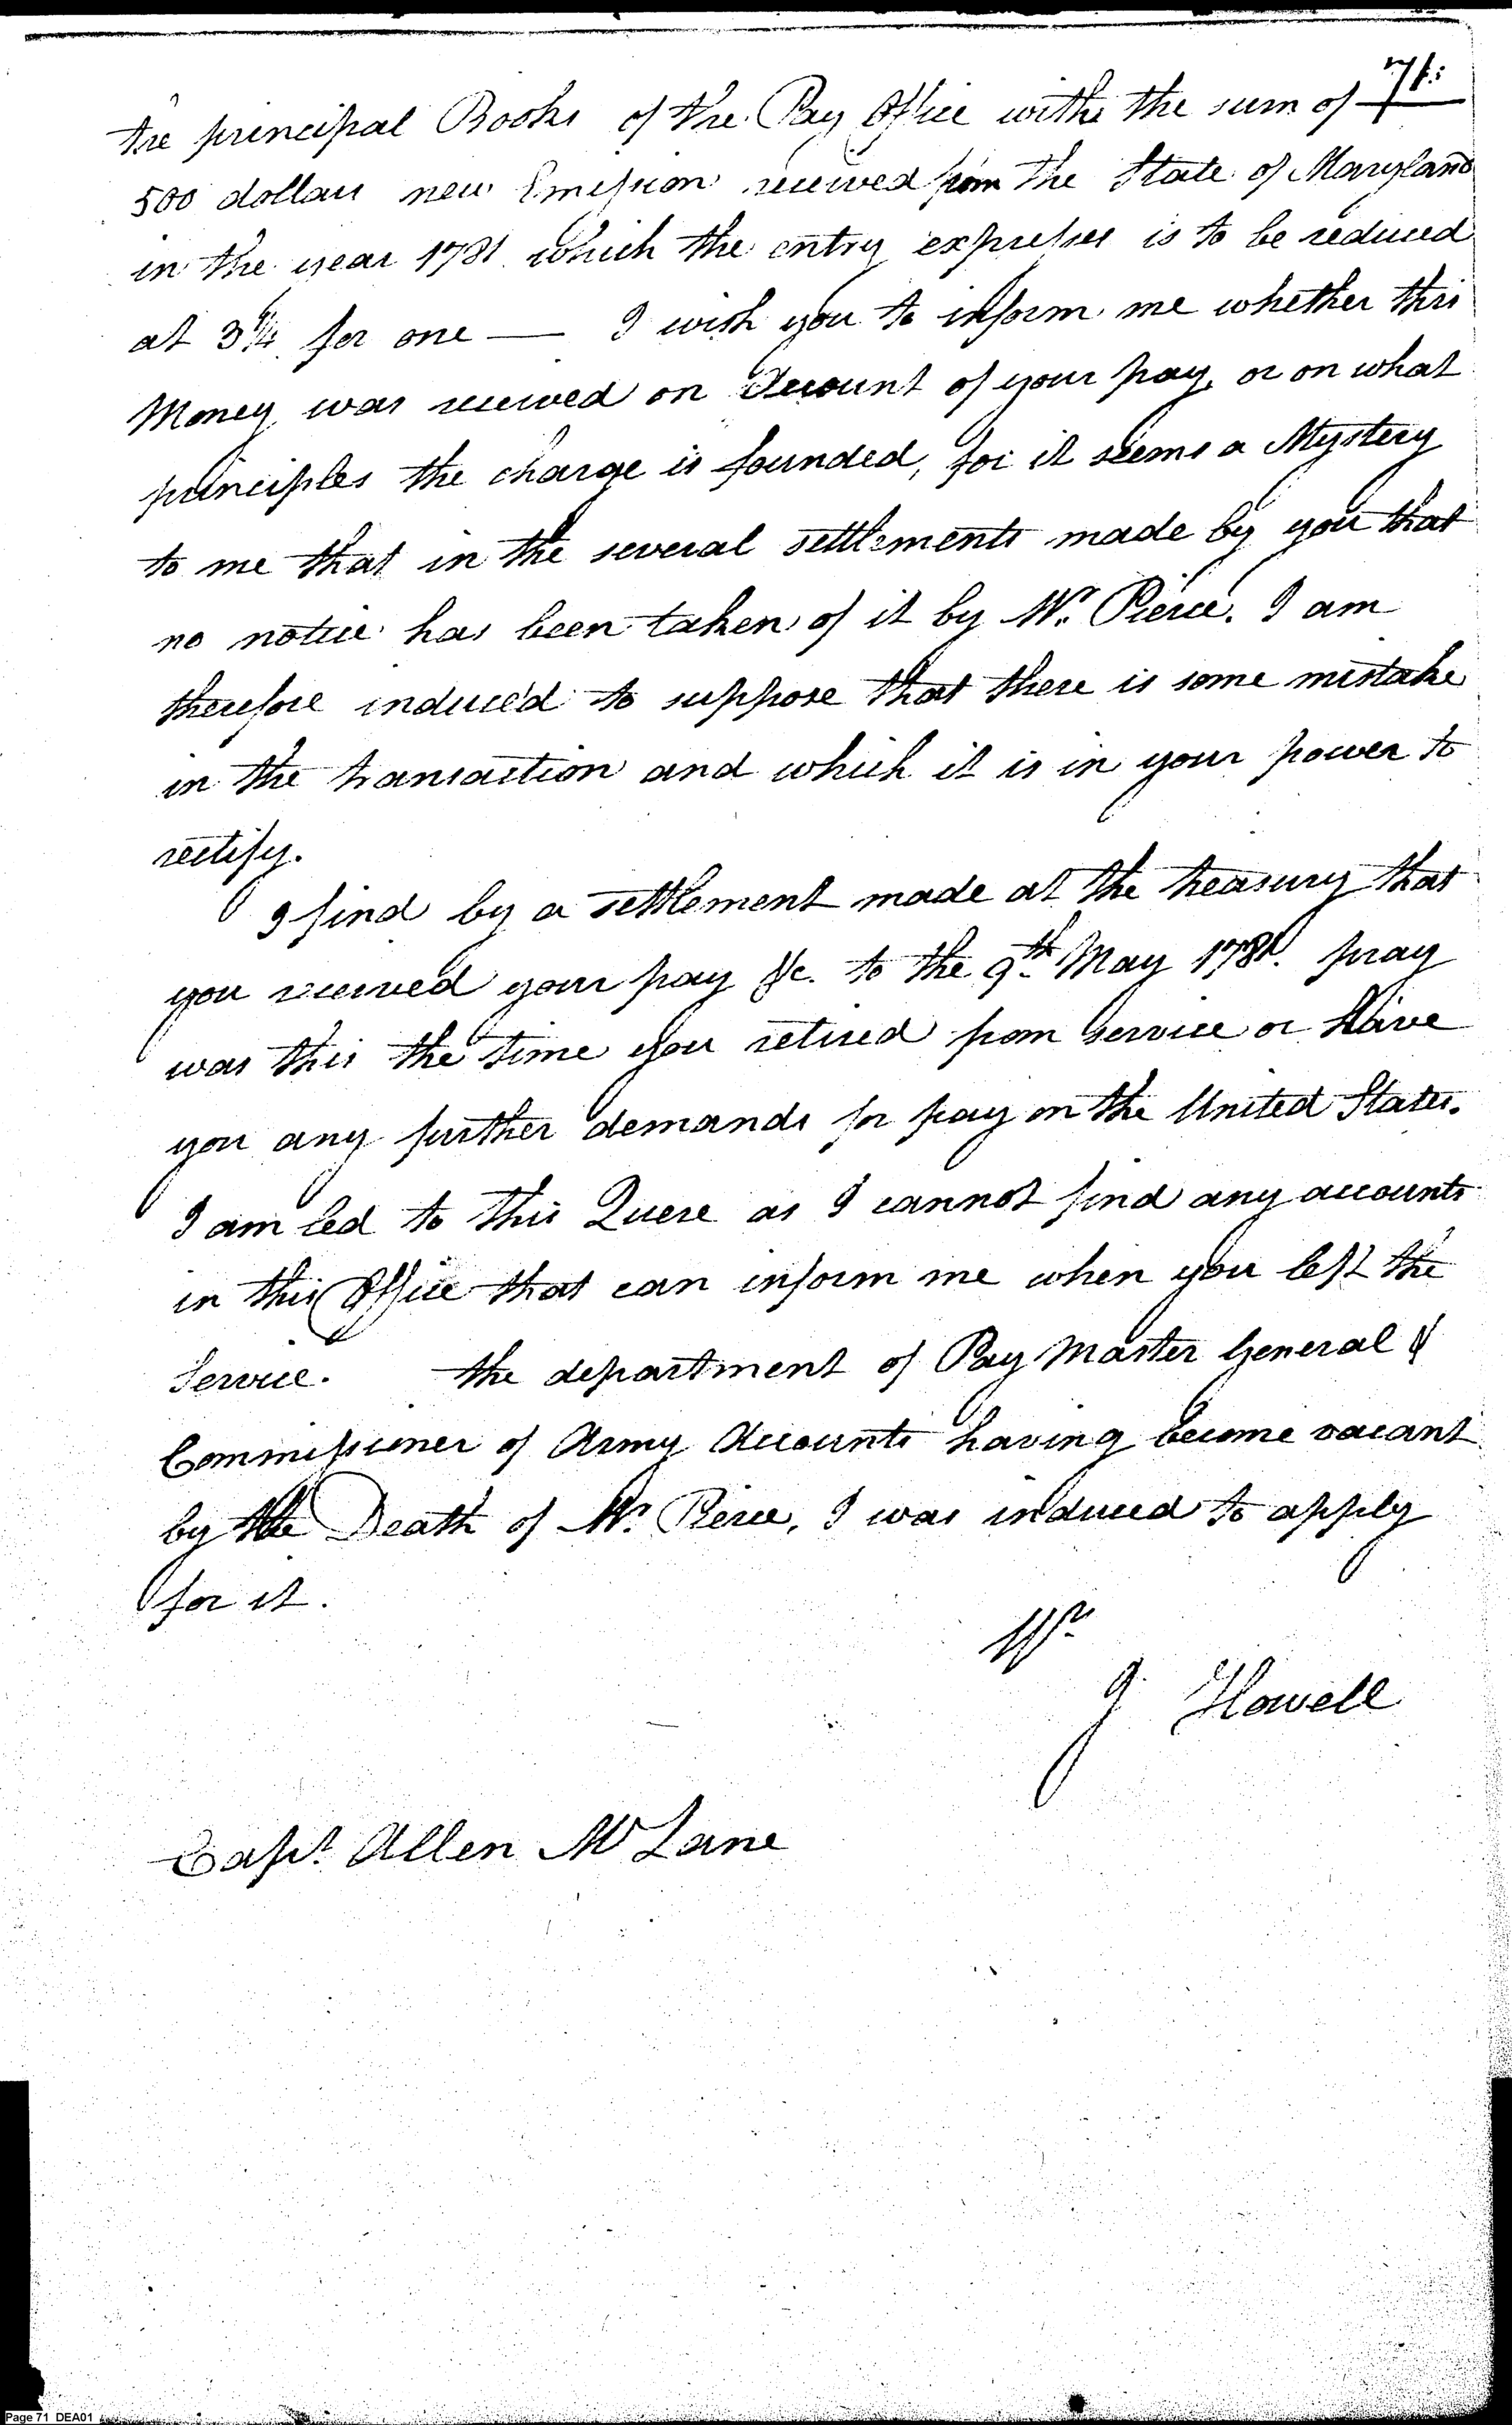 71.
the principal Books of the Pay Office withe the sum of
500 dollars new Emission received from the State of Maryland
in the year 1781 which the entry expresses is to be reduced
at 3 1/4 for one — I wish you to inform me whether this
Money was received on Account of your pay, or on what
principles the charge is founded, for it seems a Mystery
to me that in the several settlements made by you that
no notice has been taken of it by Mr. Pierce. I am
therefore induced to suppose that there is some mistake
in the transaction and which it is in your power to
rectify.
I find by a settlement made at the treasury that
you received your pay &c. to the 9th May 1781. pray
was this the time you retired from service or have
you any further demands for pay on the United States.
I am led to this Quere as I cannot find any accounts
in this Office that can inform me when you left the
Service. the department of Pay Master General &
Commissioner of Army Accounts having become vacant
by the Death of Mr. Pierce, I was induced to apply
for it.
J Howell
Capt. Allen Mc Lane
Page 71 DEA01